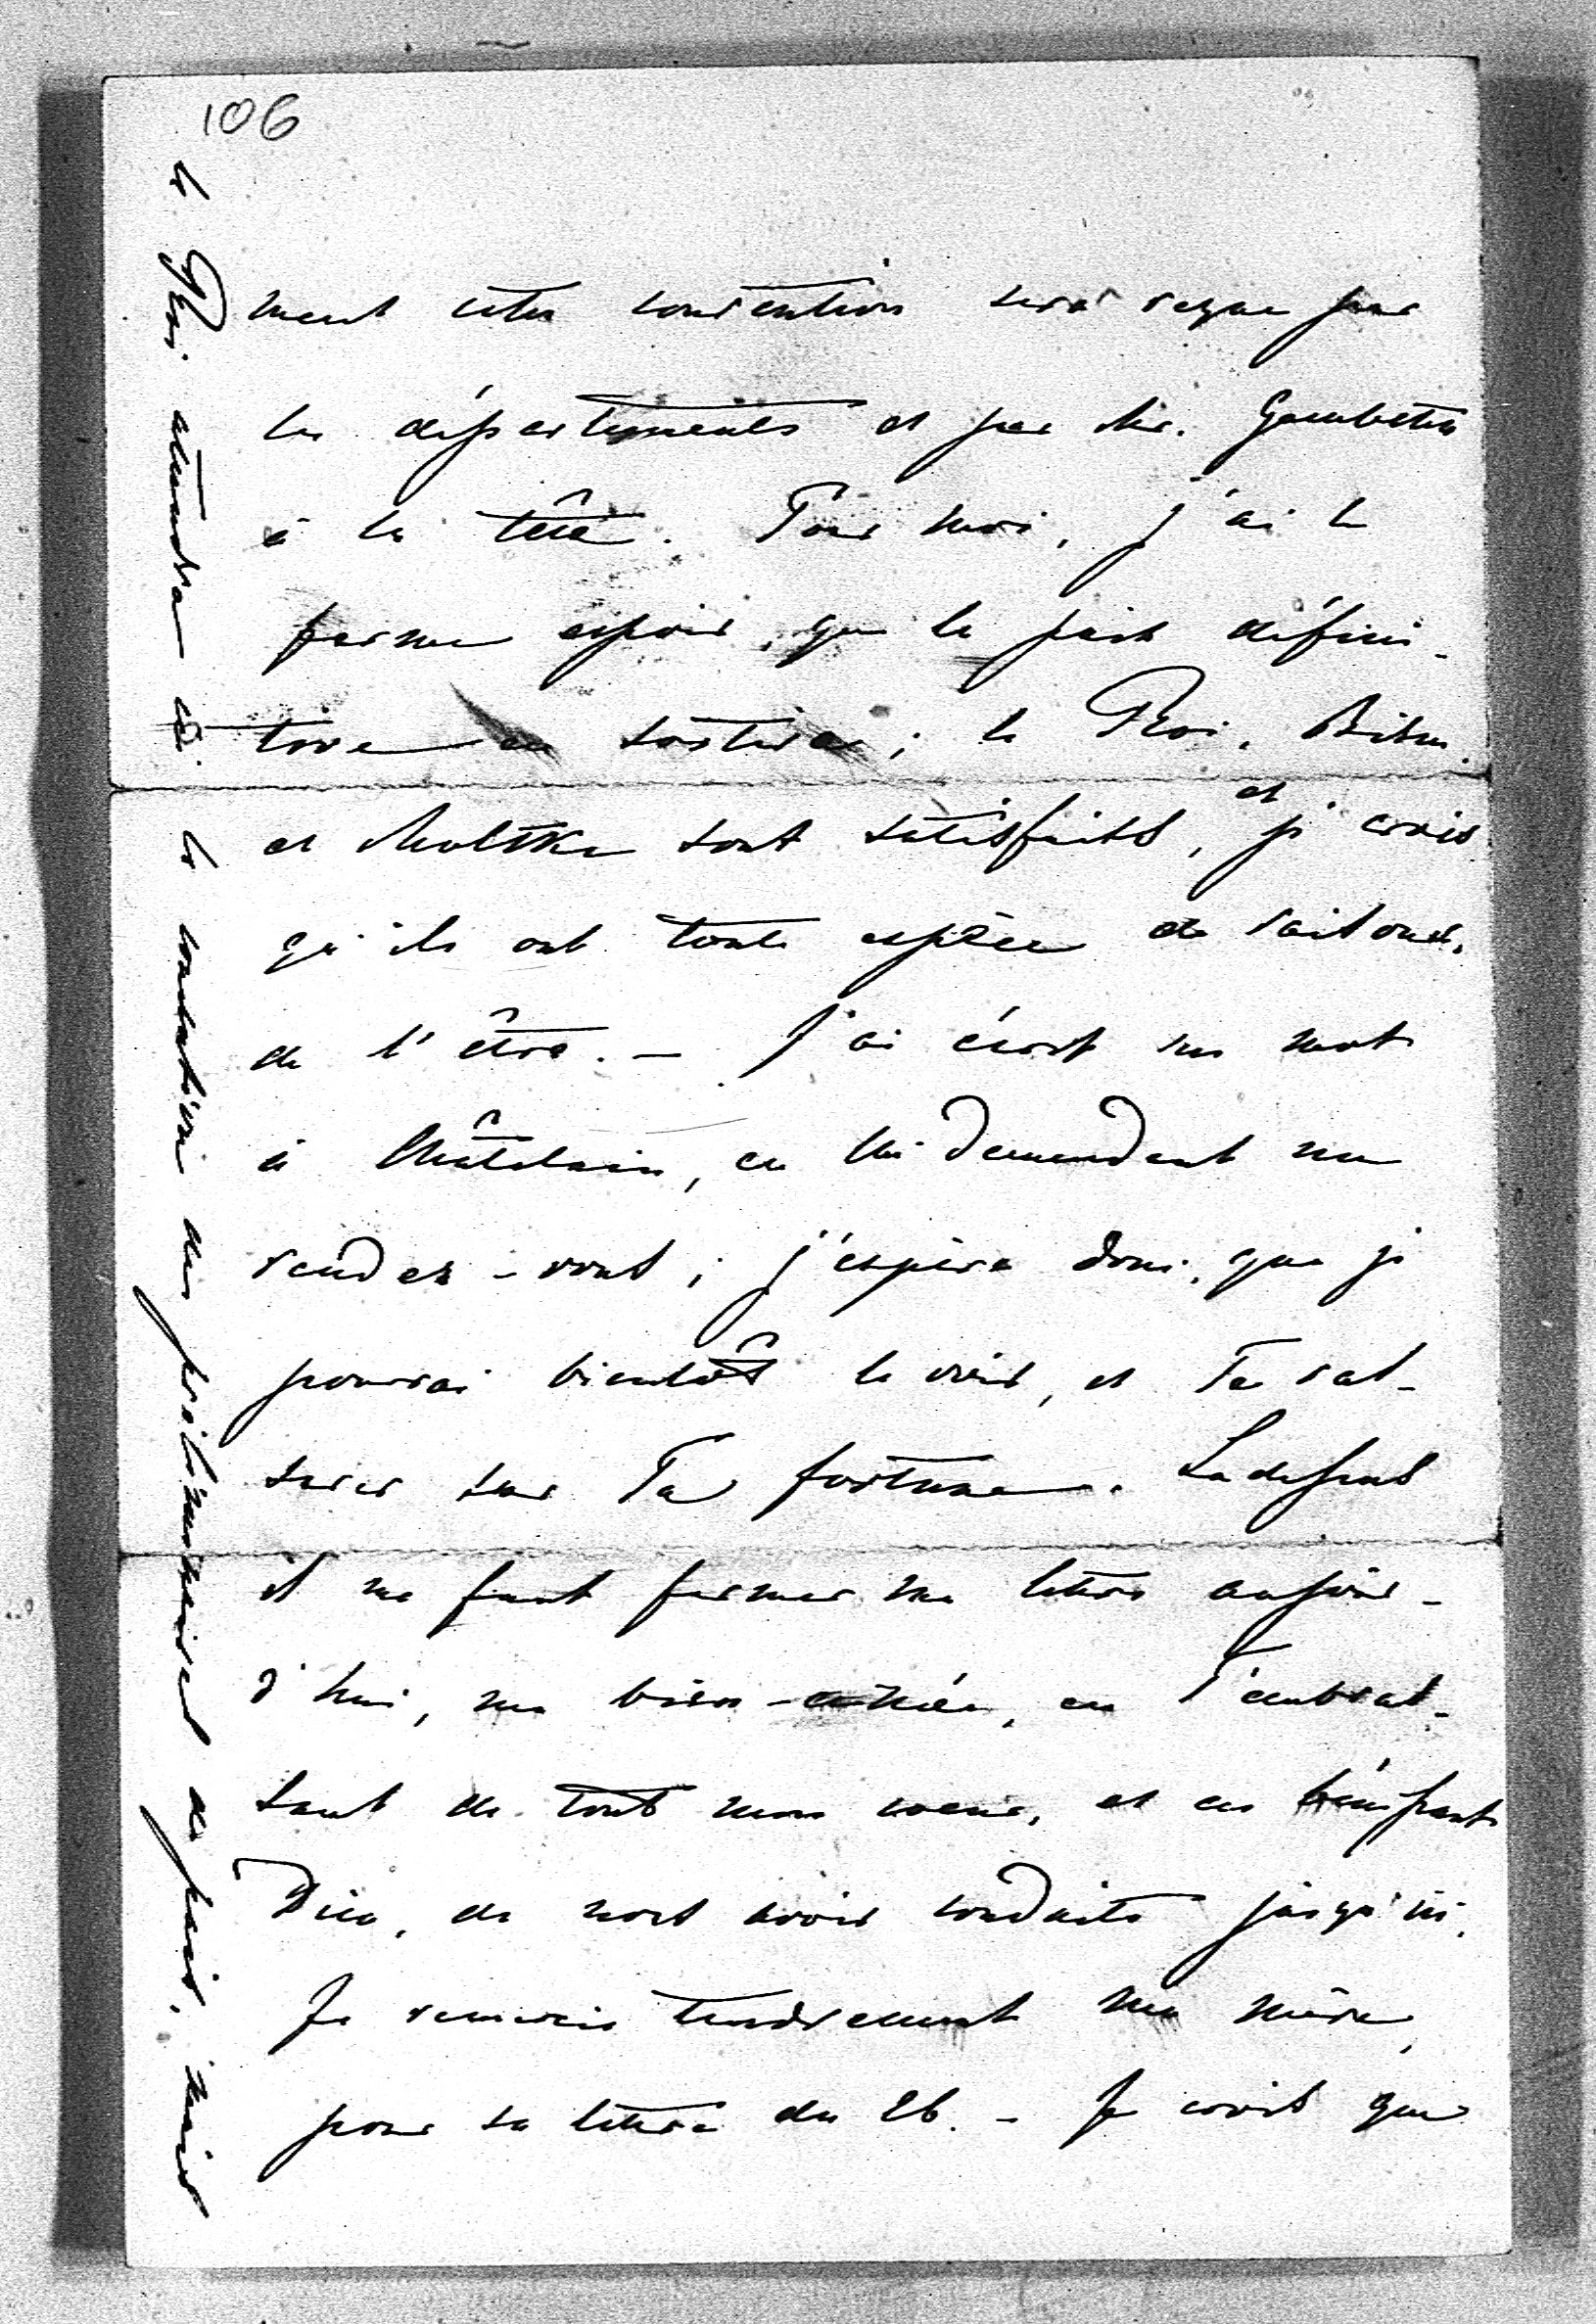 106
ment cette convention sera reçue par
les départements et par Mr. Gambetta
à la tête. Pour moi, j'ai le
ferme espoir, que la paix défini-
tive en sortira; le Roi, Bism.
et Moltke sont satisfaits, et je crois
qu'ils ont toute espèce de raisons,
de l'être. — J'ai écrit un mot
à Châtelain, en lui demandant un
rendez-vous; j'espère donc, que je
pourrai bientôt le voir, et Te ras-
surer sur Ta fortune. Ladessus
il me faut fermer ma lettre aujour-
d'hui, ma bien-aimée, en T'embras-
sant de tout mon coeur, et en bénissant
Dieu, de nous avoir conduits jusqu'ici.
Je remercie tendrement ma mère,
pour sa lettre du 26. — Je crois que
le Roi attendra ici la conclusion des préliminaires de paix, mais